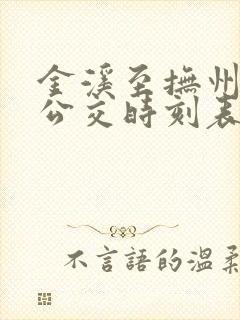 金溪至撫州
公交時刻表
不言語的溫柔